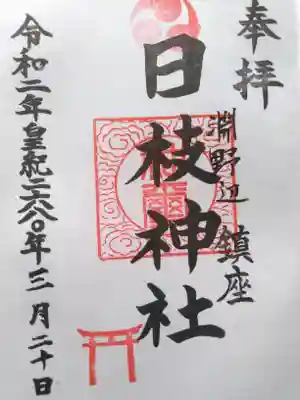 奉拝
淵野辺 鎮座
日枝神社
令和二年皇紀二六八〇年三月二十日